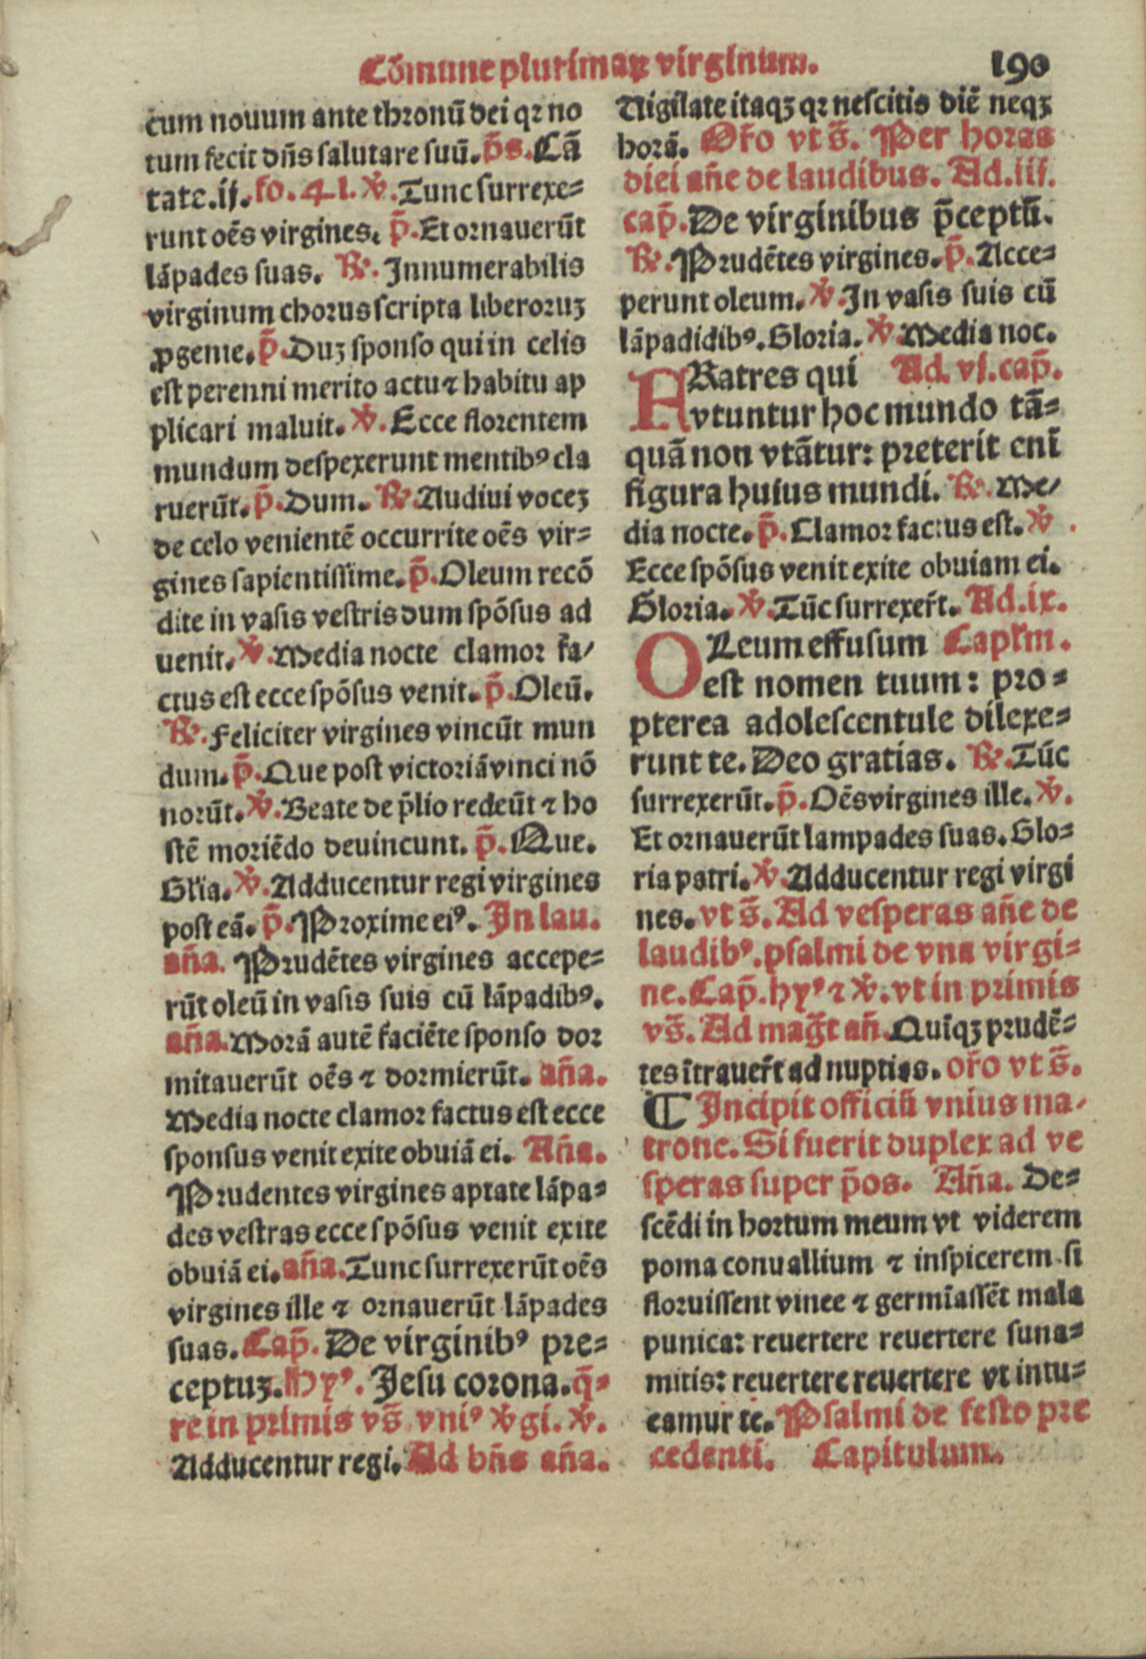 Cōmune plurimaꝝ virginum. 190
cum novum ante thronū dei qꝛ no
tum fecit dn̄s salutare suū. p̄s. Cā
tate.ij. fo. 41. ℣. Tunc surrexe-
runt oēs virgines. p̄. Et ornauerūt
lāpades suas. ℟. Innumerabilis
virginum chorus scripta liberoruꝫ
ꝓgenie. p̄. Duꝫ sponso qui in celis
est perenni merito actu ⁊ habitu ap
plicari maluit. ℣. Ecce florentem
mundum despexerunt mentibꝰ cla
ruerūt. p̄. Dum. ℟. Audiui voceꝫ
de celo venientē occurrite oēs vir-
gines sapientissime. p̄. Oleum recō
dite in vasis vestris dum spōsus ad
uenit. ℣. Media nocte clamor fa/
ctus est ecce spōsus venit. p̄. Oleū.
℟. Feliciter virgines vincūt mun
dum. p̄. Que post victoriā vinci nō
norūt. ℣. Beate de p̄lio redeūt ⁊ ho
stē moriēdo deuincunt. p̄. Que.
Gl̄ia. ℣. Adducentur regi virgines
post eā. p̄. Proxime eiꝰ. In lau.
an̄a. Prudētes virgines accepe-
rūt oleū in vasis suis cū lāpadibꝰ.
an̄a. Morā autē faciēte sponso dor
mitauerūt oēs ⁊ dormierūt. an̄a.
Media nocte clamor factus est ecce
sponsus venit exite obuiā ei. An̄a.
Prudentes virgines aptate lāpa-
des vestras ecce spōsus venit exite
obuiā ei. an̄a. Tunc surrexerūt oēs
virgines ille ⁊ ornauerūt lāpades
suas. Cap̄. De virginibꝰ pre-
ceptuꝫ. Hyꝰ. Jesu corona. q̄-
re in primis vs̄ vniꝰ ℣gi. ℣.
Adducentur regi. Ad bn̄s an̄a.
Uigilate itaqꝫ qꝛ nescitis diē neqꝫ
horā. Or̄o vt s̄. Per horas
diei an̄e de laudibus. Ad.iij.
cap̄. De virginibus p̄ceptū.
℟. Prudētes virgines. p̄. Acce-
perunt oleum. ℣. In vasis suis cū
lāpadidibꝰ. Gloria. ℣. Media noc.
FRatres qui Ad. vj. cap̄.
vtuntur hoc mundo tā-
quā non vtātur: preterit enī
figura huius mundi. ℟. Me/
dia nocte. p̄. Clamor factus est. ℣.
Ecce spōsus venit exite obuiam ei.
Gloria. ℣. Tūc surrexer̄t. Ad.ix.
OLeum effusum Capl̄m.
est nomen tuum: pro-
pterea adolescentule dilexe-
runt te. Deo gratias. ℟. Tūc
surrexerūt. p̄. Oēs virgines ille. ℣.
Et ornauerūt lampades suas. Glo-
ria patri. ℣. Adducentur regi virgi
nes. vt s̄. Ad vesperas an̄e de
laudibꝰ. psalmi de vna virgi-
ne. Cap̄. hyꝰ ⁊ ℣. vt in primis
vs̄. Ad mag̅t an̄. Quīqꝫ prudē-
tes ītrauer̄t ad nuptias. or̄o vt s̄.
¶ Incipit officiū vnius ma-
trone. Si fuerit duplex ad ve
speras super p̄os. An̄a. De-
scēdi in hortum meum vt viderem
poma conuallium ⁊ inspicerem si
floruissent vinee ⁊ germīassēt mala
punica: reuertere reuertere suna-
mitis: reuertere reuertere vt intu-
eamur te. Psalmi de festo pre
cedenti. Capitulum.